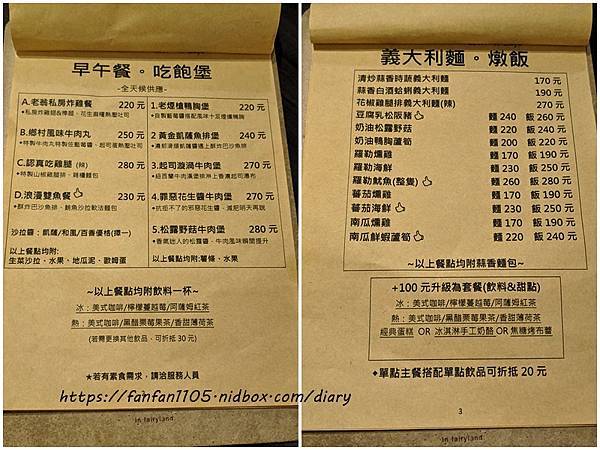 早午餐。吃飽堡
-全天候供應-
A.老翁私房炸雞餐 220元
B.鄉村風味牛肉丸 250元
C.認真吃雞腿(辣) 280元
D.浪漫雙魚餐 230元
沙拉醬：凱薩/和風/百香優格(擇一)
以上餐點均附:
生菜沙拉、水果、地瓜泥、歐姆蛋
1.老煙槍鴨胸堡 220元
2.黃金凱薩魚排堡 240元
3.起司漩渦牛肉堡 270元
4.罪惡花生醬牛肉堡 270元
5.松露野菇牛肉堡 280元
•香氣迷人的松露醬，牛肉風味瞬間提升
以上餐點均附:薯條、水果
~以上餐點均附飲料一杯~
冰：美式咖啡/檸檬蔓越莓/阿薩姆紅茶
熱：美式咖啡/黑醋栗莓果茶/香甜薄荷茶
(若需更換其他飲品，可折抵30元)
★若有素食需求，請洽服務人員
in fairyland.
義大利麵。燉飯
清炒蒜香時蔬義大利麵 170元
蒜香白酒蛤蜊義大利麵 190元
花椒雞腿排義大利麵(辣) 270元
豆腐乳松阪豬 麵 240 飯 260元
奶油松露野菇 麵 220 飯 240元
奶油鴨胸蘆筍 麵 200 飯 220元
羅勒燻雞 麵 170 飯 190元
羅勒海鮮 麵 230 飯 250元
羅勒魷魚(整隻) 麵 260 飯 280元
蕃茄燻雞 麵 170 飯 190元
蕃茄海鮮 麵 230 飯 250元
南瓜燻雞 麵 170 飯 190元
南瓜鮮蝦蘆筍 麵 220 飯 240元
~以上餐點均附蒜香麵包~
+100元升級為套餐(飲料&甜點)
冰：美式咖啡/檸檬蔓越莓/阿薩姆紅茶
熱：美式咖啡/黑醋栗莓果茶/香甜薄荷茶
經典蛋糕 OR 冰淇淋手工奶酪 OR 焦糖烤布蕾
◆單點主餐搭配單點飲品可折抵20元
3
in fairyland.
https://fanfan1105.nidbox.com/diary